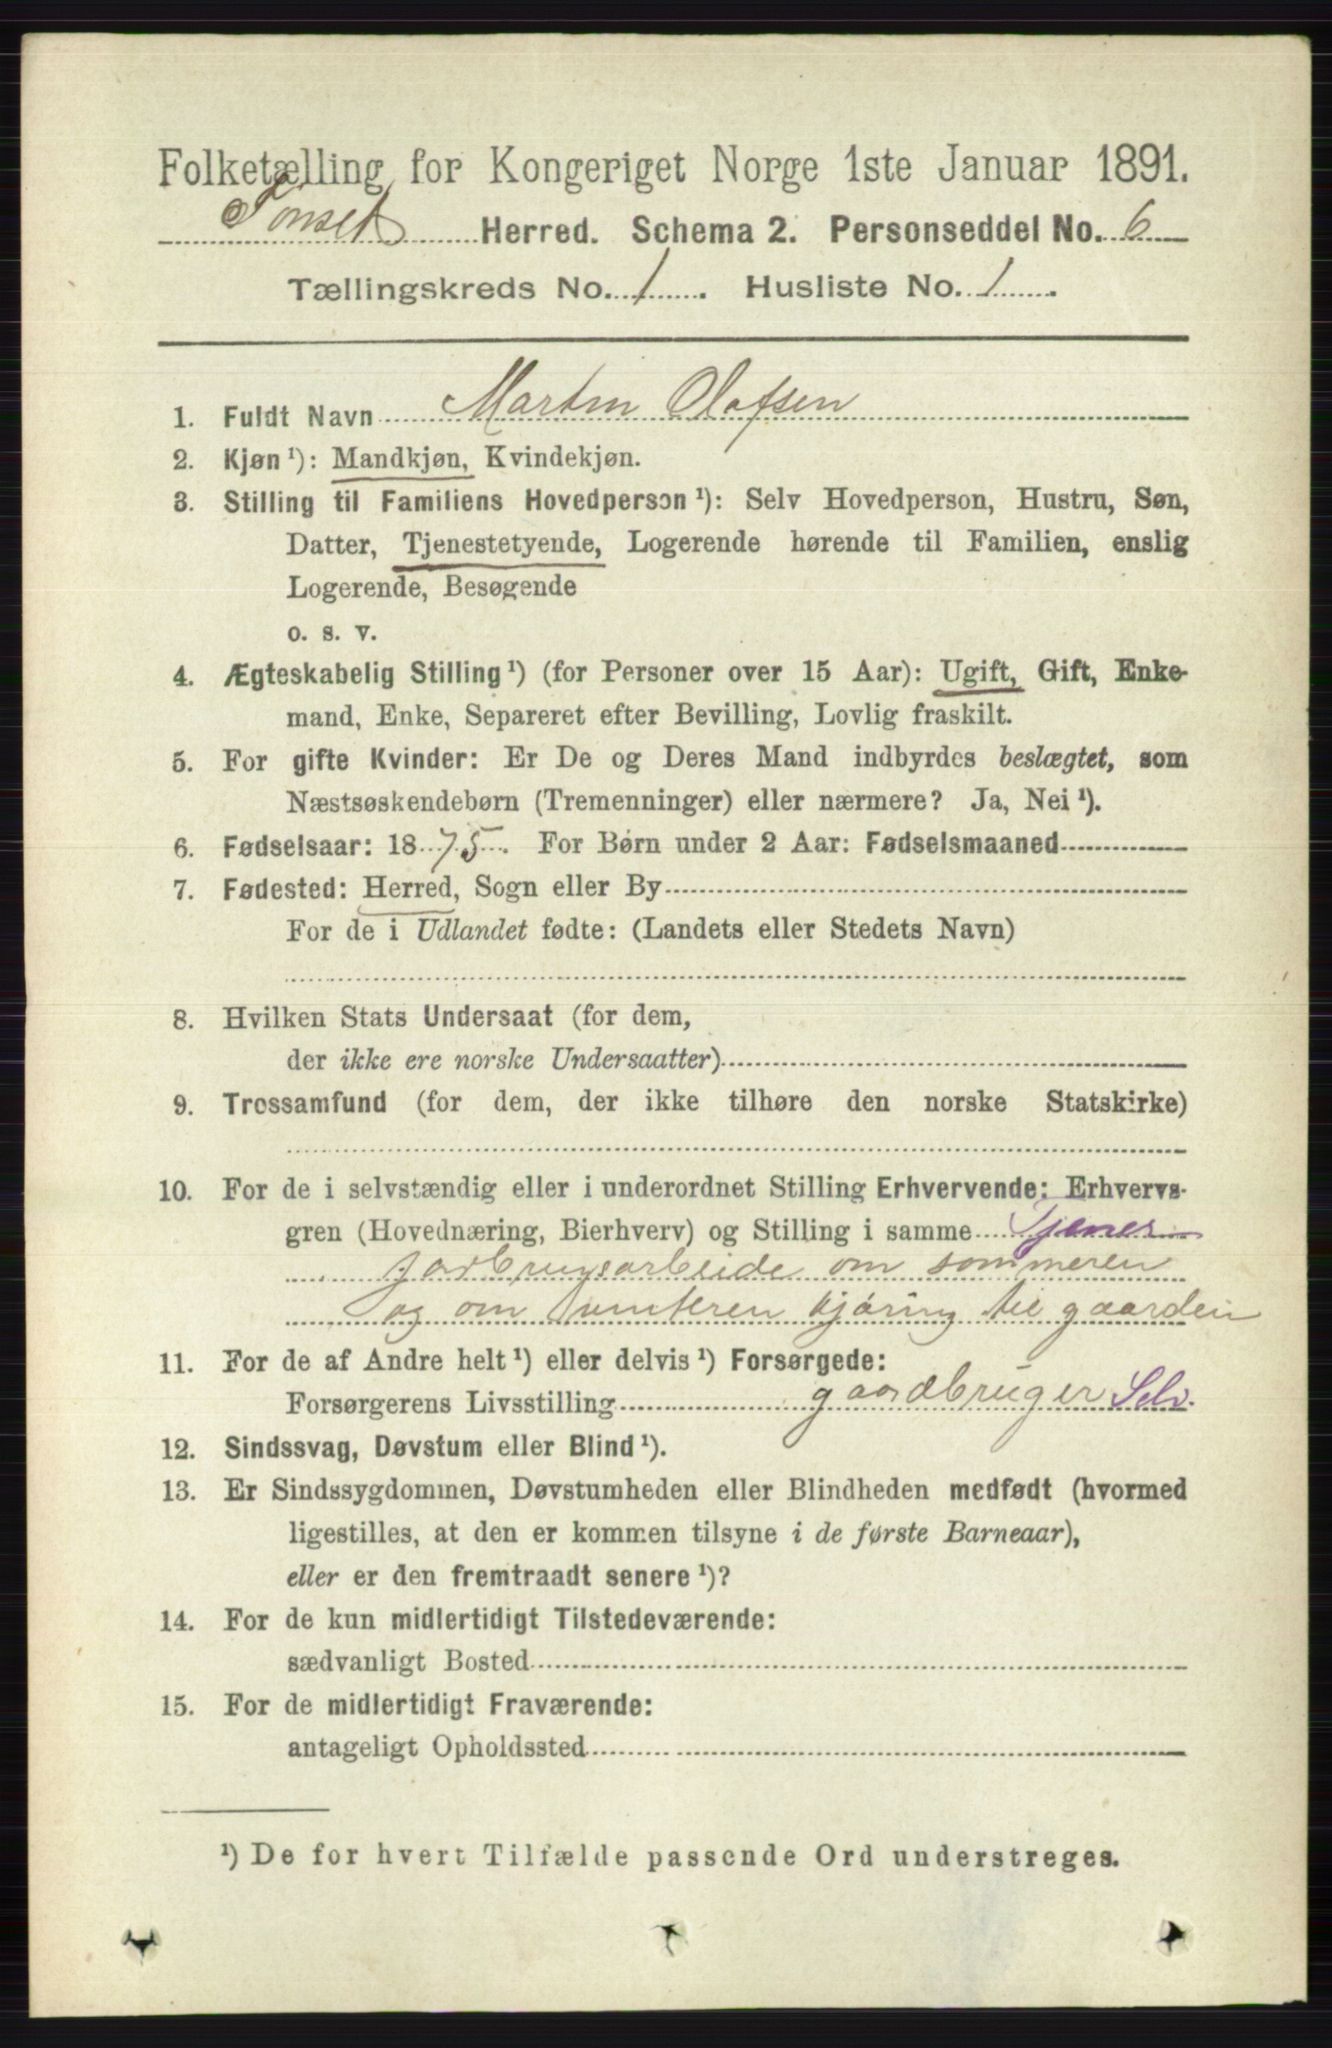 Folketælling for Kongeriget Norge 1ste Januar 1891.
Tønset Herred. Schema 2. Personseddel No. 6
Tællingskreds No. 1. Husliste No. 1.
1. Fuldt Navn Martin Olafsen
2. Kjøn¹): Mandkjøn, Kvindekjøn.
3. Stilling til Familiens Hovedperson¹): Selv Hovedperson, Hustru, Søn,
Datter, Tjenestetyende, Logerende hørende til Familien, enslig
Logerende, Besøgende
o. s. v.
4. Ægteskabelig Stilling¹) (for Personer over 15 Aar): Ugift, Gift, Enke-
mand, Enke, Separeret efter Bevilling, Lovlig fraskilt.
5. For gifte Kvinder: Er De og Deres Mand indbyrdes beslægtet, som
Næstsøskendebørn (Tremenninger) eller nærmere? Ja, Nei¹).
6. Fødselsaar: 1875. For Børn under 2 Aar: Fødselsmaaned
7. Fødested: Herred, Sogn eller By
For de i Udlandet fødte: (Landets eller Stedets Navn)
8. Hvilken Stats Undersaat (for dem,
der ikke ere norske Undersaatter)
9. Trossamfund (for dem, der ikke tilhøre den norske Statskirke)
10. For de i selvstændig eller i underordnet Stilling Erhvervende: Erhvervs-
gren (Hovednæring, Bierhverv) og Stilling i samme Tjener
jorbrugsarbeide om sommeren
og om vinteren kjøring til gaarden
11. For de af Andre helt¹) eller delvis¹) Forsørgede:
Forsørgerens Livsstilling gaardbruger Selv.
12. Sindssvag, Døvstum eller Blind¹).
13. Er Sindssygdommen, Døvstumheden eller Blindheden medfødt (hvormed
ligestilles, at den er kommen tilsyne i de første Barneaar),
eller er den fremtraadt senere¹)?
14. For de kun midlertidigt Tilstedeværende:
sædvanligt Bosted
15. For de midlertidigt Fraværende:
antageligt Opholdssted
¹) De for hvert Tilfælde passende Ord understreges.